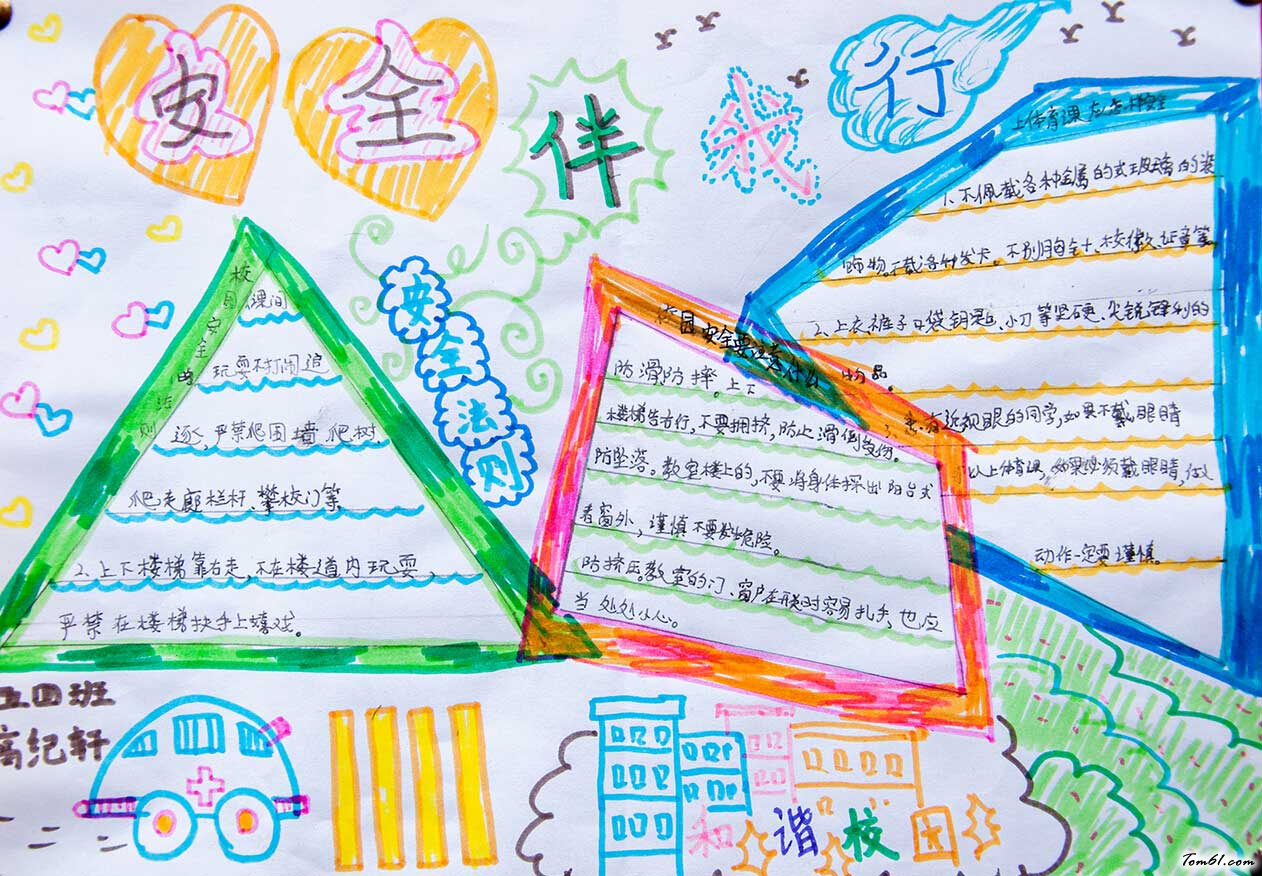 安全伴我行
安全法则
校园安全的法则
课间
玩耍不打闹追
逐,严禁爬围墙爬树
爬走廊栏杆、攀校门等
2.上下楼梯靠右走,不在楼道内玩耍,
严禁在楼梯扶手上嬉戏。
校园安全要注意什么
防滑防摔。上下
楼梯告右行,不要拥挤,防止滑倒
防坠落。教室楼上的,不要将身体探出阳台或
者窗外,谨慎不要发生危险。
防挤压。教室的门、窗户在开关时容易扎手,也应
当处处小心。
上体育课应怎样安全
1.不佩戴各种金属的或玻璃的装
饰物。不戴各种发卡。不别胸针、校徽、证章等
2.上衣裤子口袋钥匙、小刀等坚硬、尖锐锋利的
物品。
有近视眼的同学,如果不戴眼睛
以上体育课,如果必须戴眼睛,做
动作一定要谨慎。
五四班
高纪轩
和谐校园
Tom61.com